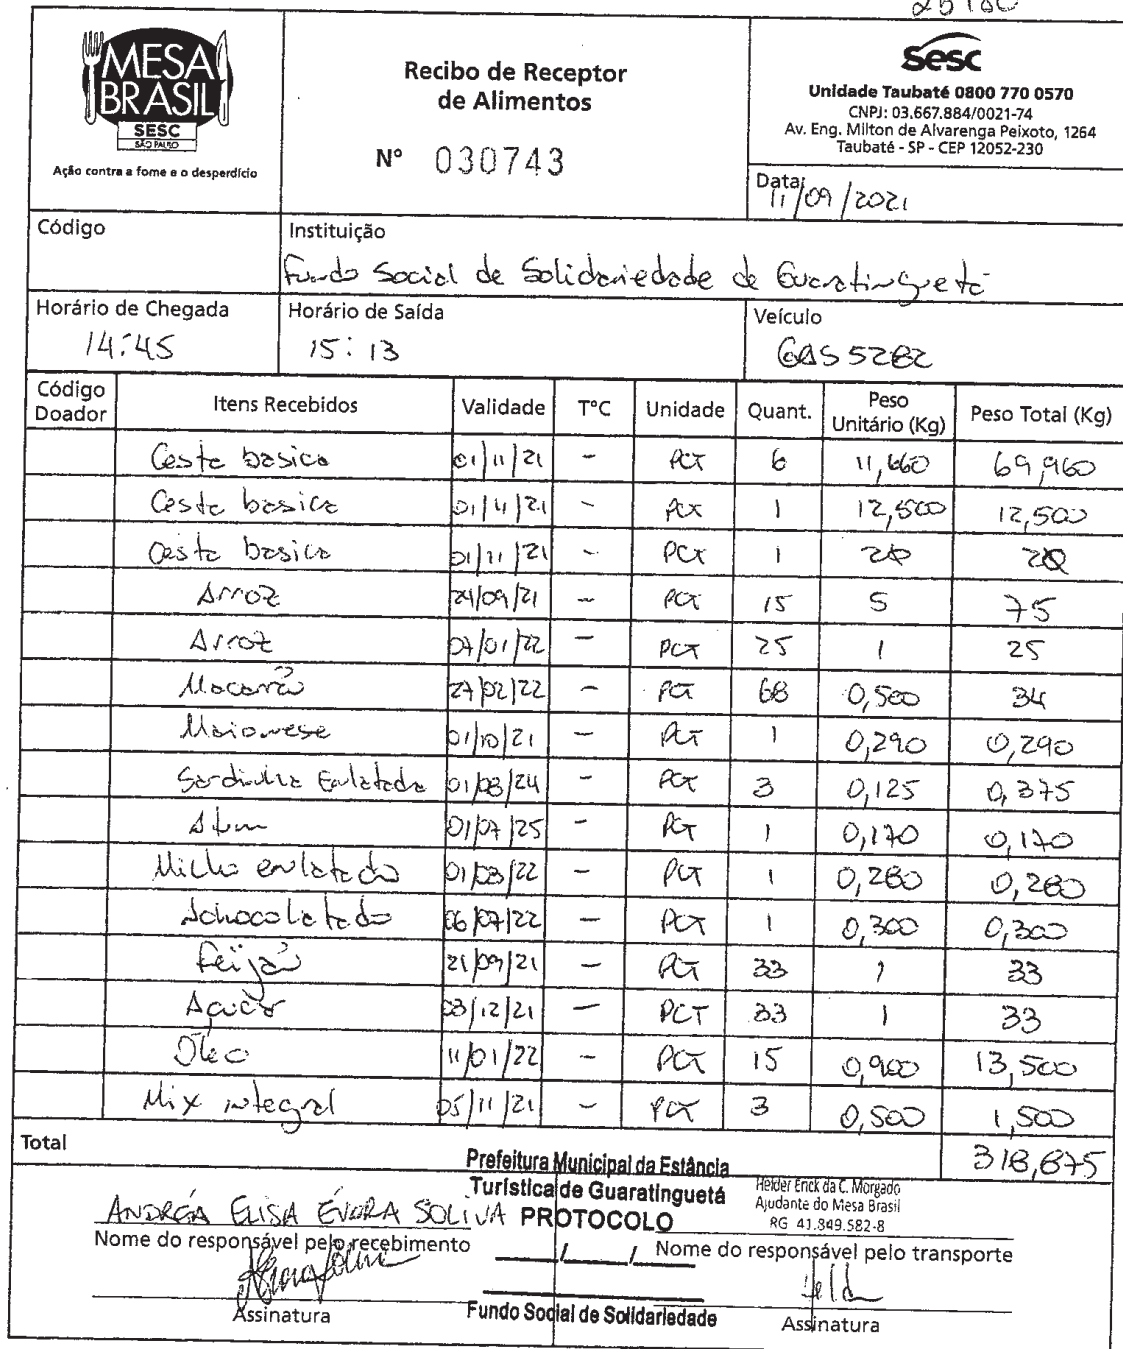 MESA
BRASIL
SESC
SÃO PAULO
Ação contra a fome e o desperdício
Recibo de Receptor
de Alimentos
N° 030743
Sesc
Unidade Taubaté 0800 770 0570
CNPJ: 03.667.884/0021-74
Av. Eng. Milton de Alvarenga Peixoto, 1264
Taubaté - SP - CEP 12052-230
Data: 11/09/2021
Código
Instituição
Fundo Social de Solidariedade de Guaratinguetá
Horário de Chegada Horário de Saída Veículo
14:45 15:13
Código Doador Itens Recebidos Validade T°C Unidade Quant. Peso Unitário (Kg) Peso Total (Kg)
Cesta basica 01/11/21 - PCT 6 11,660 69,960
Cesta basica 01/11/21 - PCT 1 12,500 12,500
Cesta basica 01/11/21 - PCT 1 20 20
Arroz 24/09/21 - PCT 15 5 75
Arroz 07/01/22 - PCT 25 1 25
Macarrão 27/02/22 - PCT 68 0,500 34
Maionese 01/10/21 - PCT 1 0,290 0,290
Sardinha Enlatada 01/08/24 - PCT 3 0,125 0,375
Atum 01/07/25 - PCT 1 0,170 0,170
Milho enlatado 01/03/22 - PCT 1 0,280 0,280
Achocolatado 06/07/22 - PCT 1 0,300 0,300
Feijão 21/09/21 - PCT 33 1 33
Açucar 03/12/21 - PCT 33 1 33
Óleo 11/01/22 - PCT 15 0,900 13,500
Mix integral 05/11/21 - PCT 3 0,500 1,500
Total 318,875
Prefeitura Municipal da Estância
Turística de Guaratinguetá
PROTOCOLO
Helder Erick da C. Morgado
Ajudante do Mesa Brasil
RG 41.849.582-8
ANDRÉA ELISA ÉVORA SOLIVA
Nome do responsável pelo recebimento
__/__/__
Nome do responsável pelo transporte
Assinatura
Fundo Social de Solidariedade
Assinatura